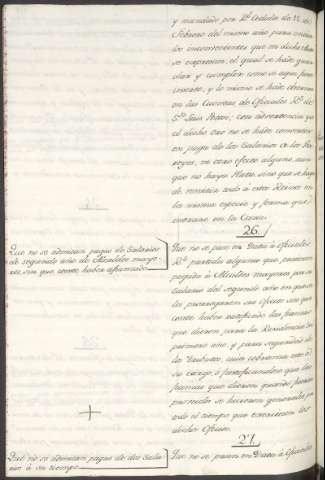 y mandado por Rl. Cedula de 22. de
Febrero del mismo año para
los inconvenientes que en dicha
se expresan, el qual se ha de guar-
dar y cumplir como se sigue
y lo mismo se ha de observar
en las Cuentas de Oficiales Rs. de
Sn. Luis Potosi; con advertencia que
el dicho oro no se ha de convertir
en paga de los Salarios de los
ni otro efecto alguno, aun
que no haya Plata, sino que se haya
de remitir todo á estos Reinos en
la misma especie y forma que
entrare en la Caxa.
26.
Que no se admitan pagas de Salarios
de segundo año de Alcaldes mayo-
res, sin que conste haber afianzado.
Que no se pase en Data á Oficiales
Rs. partida alguna que
pagado á Alcaldes mayores por su
salario del segundo año en que se
les prorrogaren sus Oficios sin que
conste haber ratificado las fianzas
que dieron, para la Residencia del
primero año, y para seguridad de
los Tributos, cuia cobranza esté á
su cargo, ó justificandose que las
fianzas que dieron quando fueron
proveidos se hicieron generales, por
todo el tiempo que exercieren los
dichos Oficios.
27.
Que no se admitan pagas de dos Sala-
rios á un tiempo
Que no se pasen en Data á Oficiales